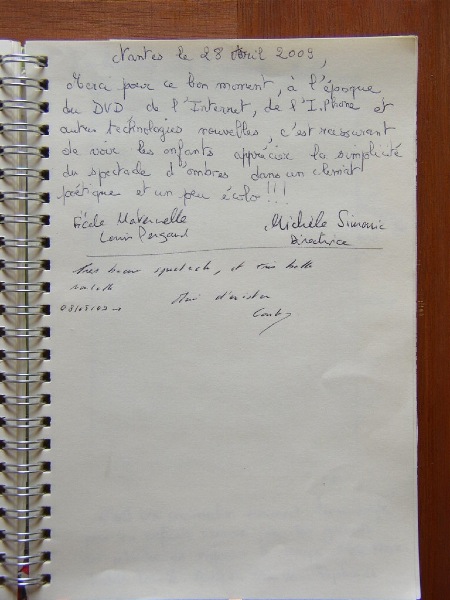 Nantes le 28 Avril 2009,
Merci pour ce bon moment, à l'époque
du DVD de l'Internet, de l'I.Phone et
autres technologies nouvelles, c'est rassurant
de voir les enfants apprécier la simplicité
du spectacle d'ombres dans un climat
poétique et un peu écolo !!!
École Maternelle Michèle Simonic
Louis Pergaud Directrice
Très beau spectacle, et très belle